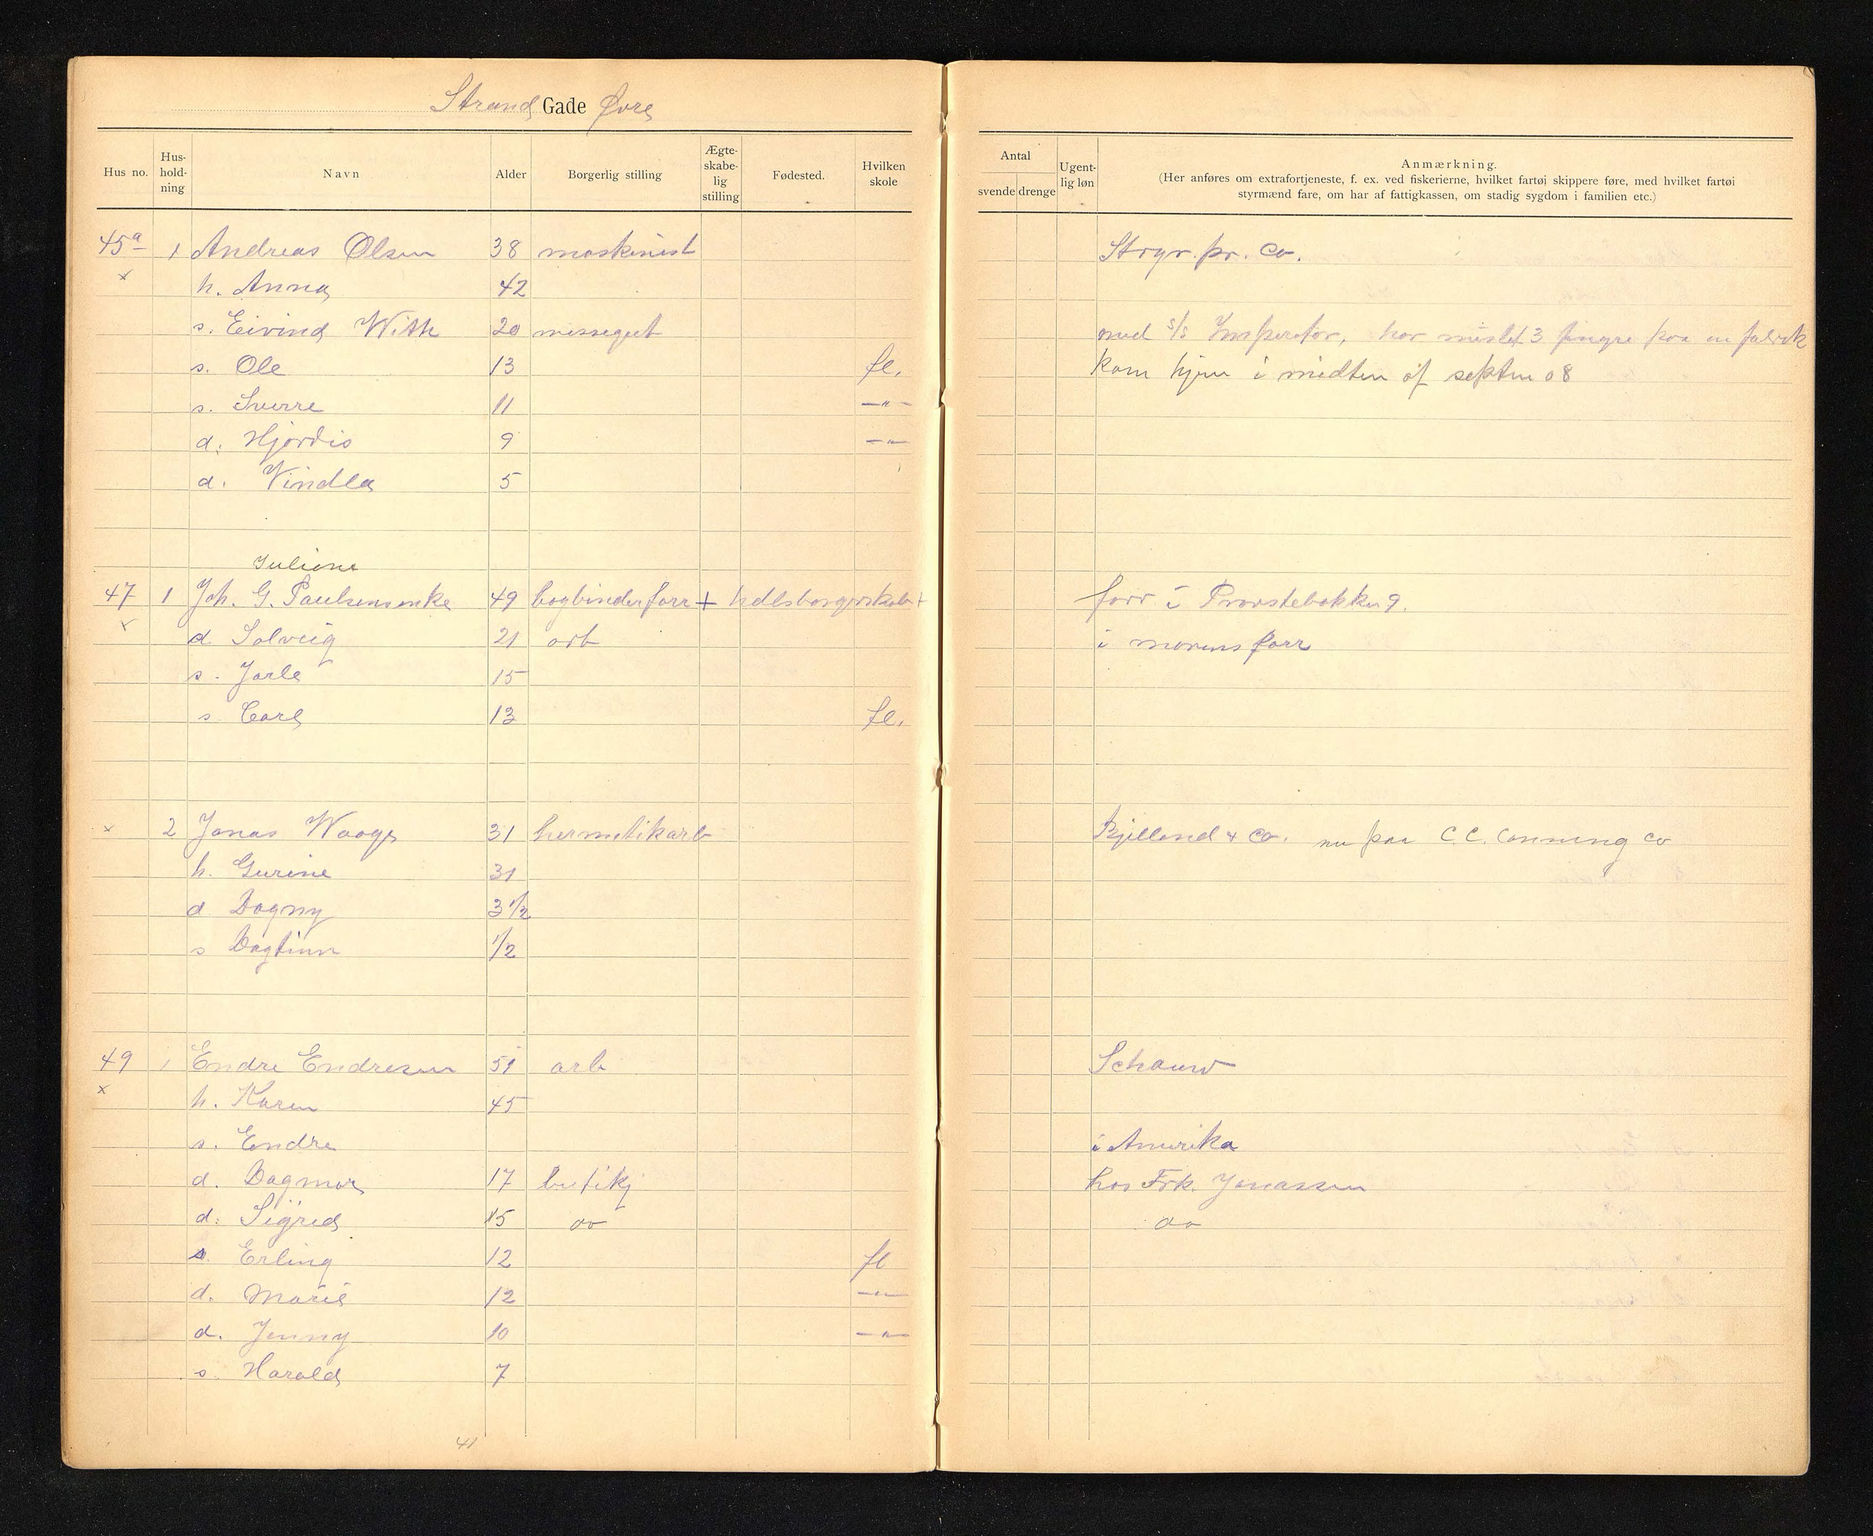 Strand Gade Øvre
Hus no. Hus-hold-ning Navn Alder Borgerlig stilling Ægte-skabe-lig stilling Fødested. Hvilken skole
Antal svende drenge Ugent-lig løn Anmærkning.
(Her anføres om extrafortjeneste, f. ex. ved fiskerierne, hvilket fartøj skippere føre, med hvilket fartøi
styrmænd fare, om har af fattigkassen, om stadig sygdom i familien etc.)
45a 1 Andreas Olsen 38 maskinist Stryr. pr. Co.
x h. Anna 42
s. Eivind With 20 messegut med s/s Inspektør, har mistet 3 fingre paa en fabrik
s. Ole 13 fl. kom hjem i midten af septem 08
s. Sverre 11 —"—
d. Hjördis 9 —"—
d. Vindla 5
Juliane
47 1 Joh. G. Paulsenenke 49 bogbinderforr + hdlsborgerskab + forr i Provstebakken 9.
x d Solveig 21 arb i morens forr
s. Jarle 15
s Carl 13 fl.
x 2 Jonas Waage 31 hermetikarb Bjelland & Co. nu paa C. C. Canning Co
h. Gurine 31
d Dagny 3 1/2
s Dagfinn 1/2
49 1 Endre Endresen 51 arb Schauw
x h. Karen 45
s. Endre i Amerika
d. Dagmar 17 butikj hos Frk. Jonassen
d. Sigrid 15 do do
s. Erling 12 fl
d. Marie 12 —"—
d. Jenny 10 —"—
s. Harald 7
41